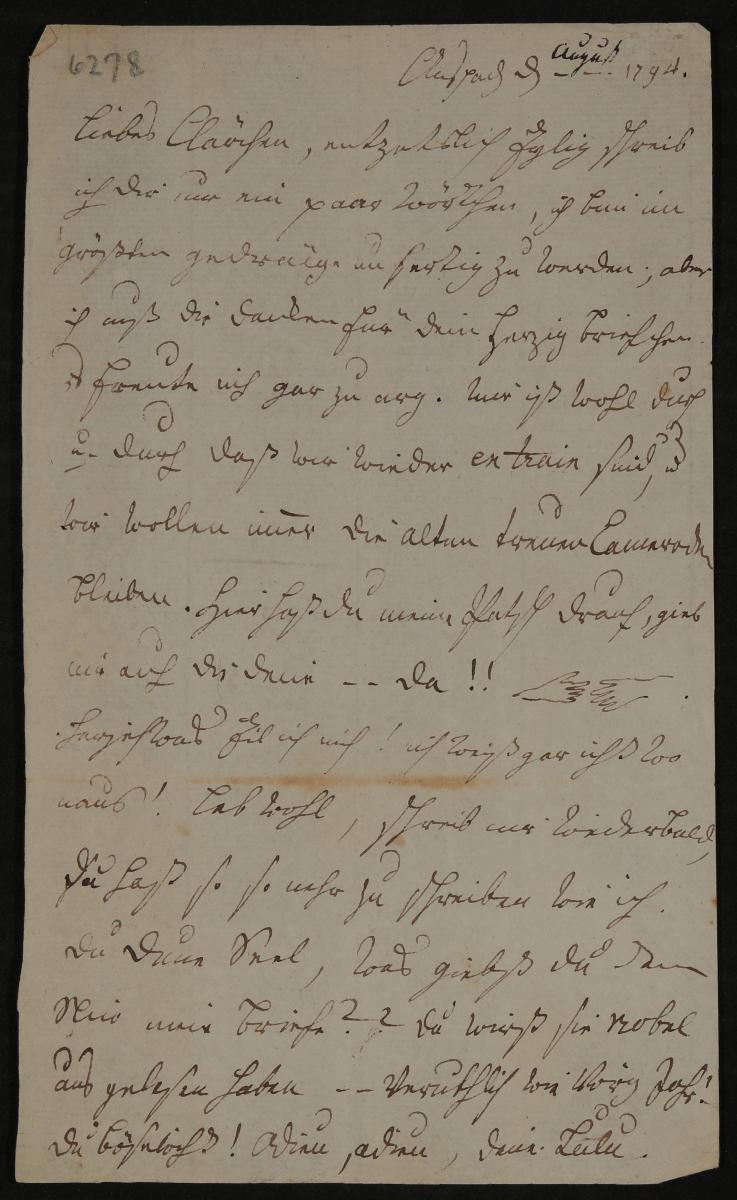 6278
Anspach d August 1794.
Liebes Clärchen, entzetzlich Eylig schreib
ich dir nur ein paar Wörtchen, ich bin im
größten gedräng um fertig zu werden; aber
ich muß dir danken für dein herzig briefchen.
es freute mich gar zu arg. mir ist wohl durch
u- durch daß wir wieder en train sind, u
wir wollen immer die alten treuen Cameraden
bleiben. hier hast du meine Patsch drauf, gieb
mir auch die deine -- da!!
was Eil ich mich! ich weiß gar nicht wo
naus! Leb wohl, schreib mir wieder bald,
Du hast so so mehr zu schreiben wie ich.
du Seel, was giebst du dem
mein briefe?? du wirst sie nobel
aus gelesen haben -- vermuthlich wie vorig Jahr!
du bößwicht! Adieu, adieu, deine Lulu.